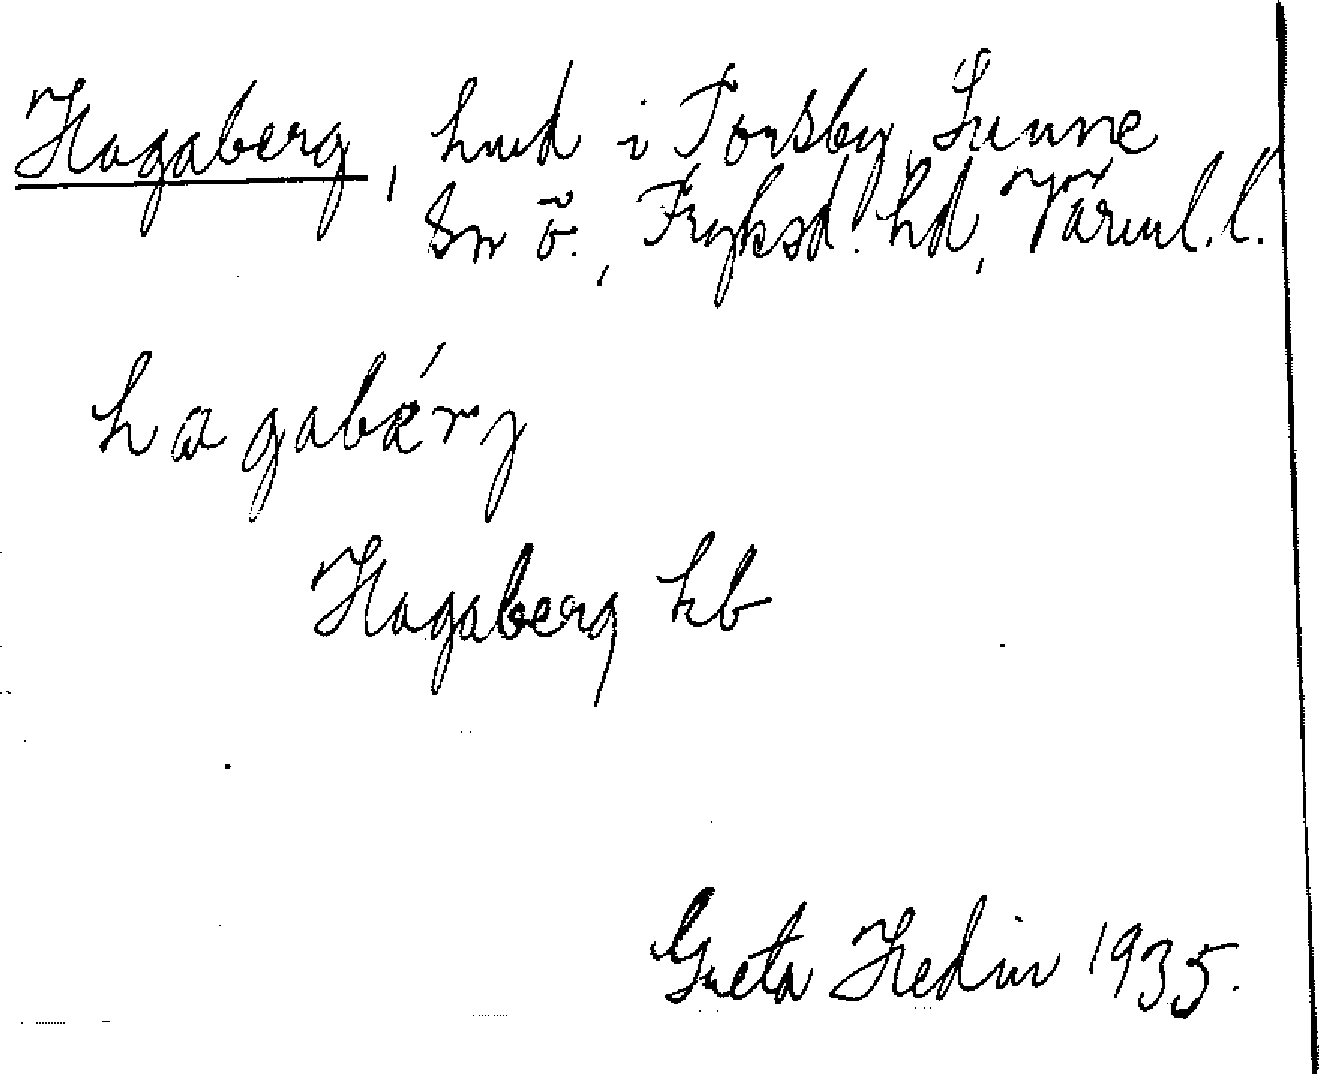 Hagaberg, hmd i Torsby, Sunne
sn ö., Fryksd. hd, Värml. l.
hagabærj
Hagaberg kb
Greta Hedin 1935.